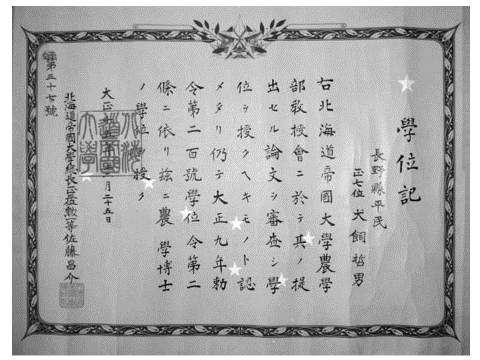 學位記
長野縣平民
正七位 犬飼哲男
右北海道帝國大學農學
部教授會ニ於テ其ノ提
出セル論文ヲ審査シ學
位ヲ授クヘキモノト認
メタリ仍テ大正九年勅
令第二百號學位令第二
條ニ依リ茲ニ農學博士
ノ學位ヲ授ク
大正 月二十五日
北海道帝國大學總長正三位勲一等佐藤昌介
第三十七號